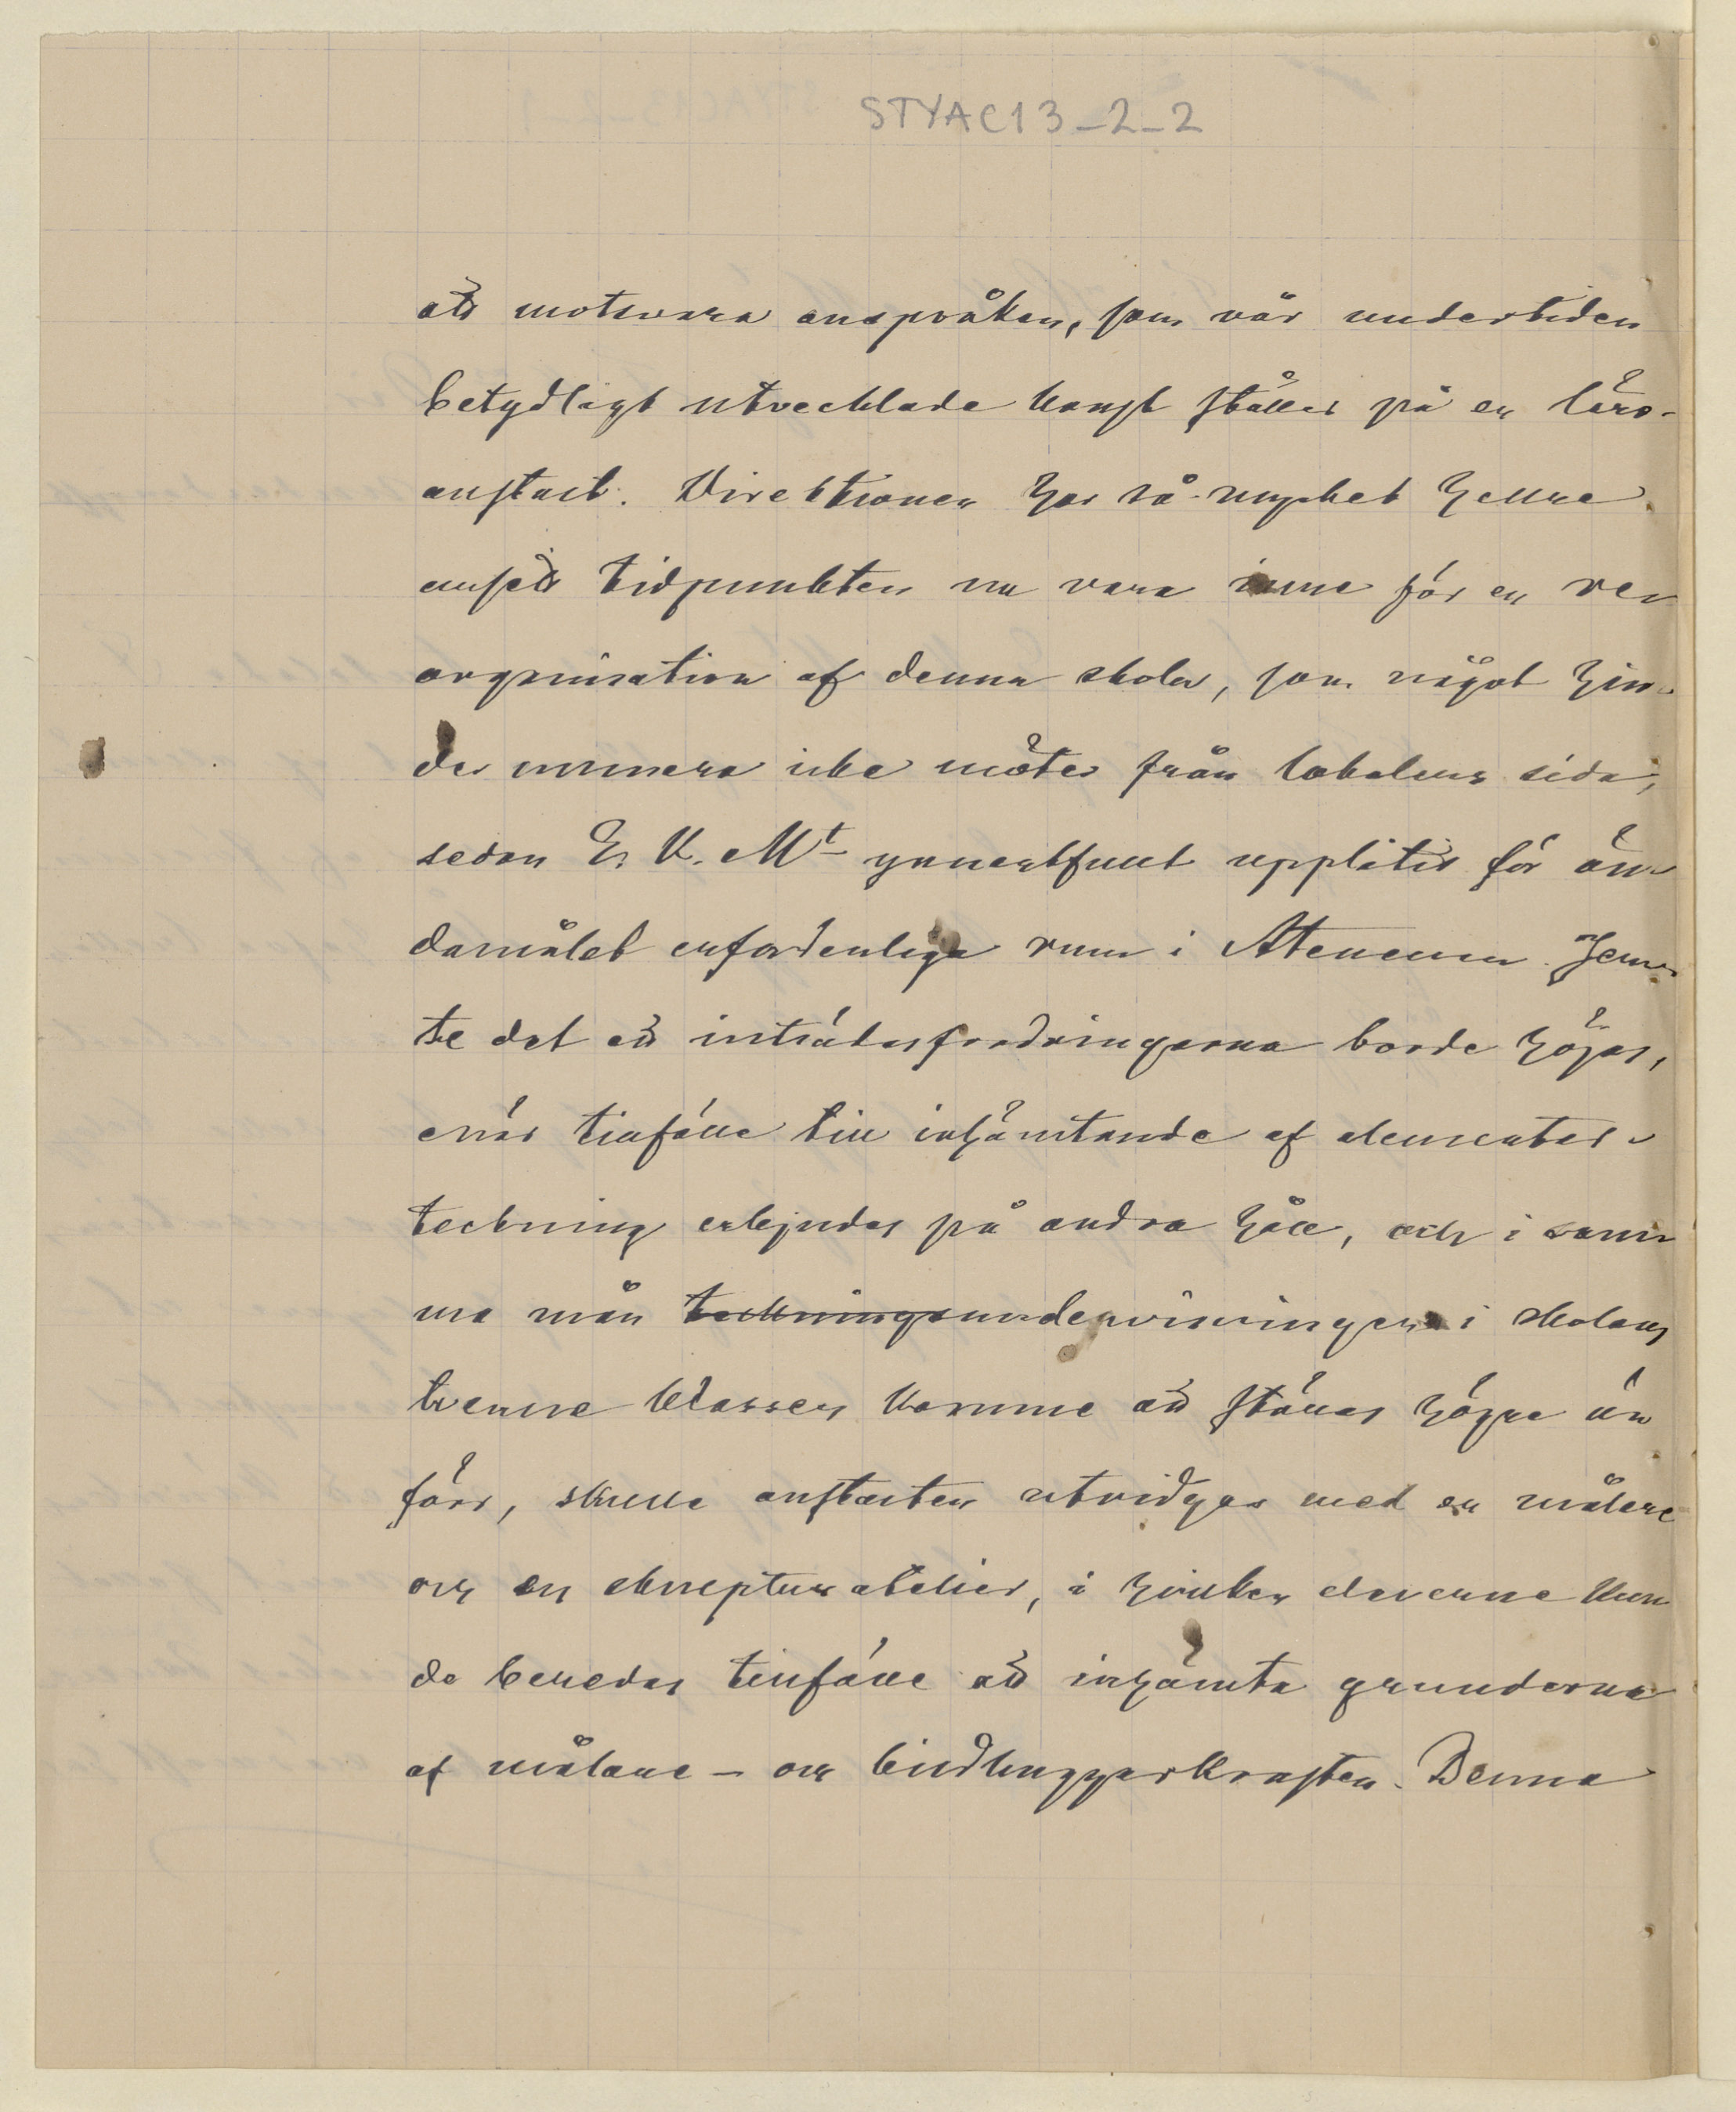 STYAC13_2_2
att motsvara anspråken, som vår undertiden
betydligt utvecklade konst ställer på en läro-
anstalt. Direktionen har så mycket hellre
ansett tidpunkten nu vara inne för en re-
organisation af denna skola, som något hin-
der numera icke möter från lokalens sida,
sedan E. K. Mt ynnestfullt upplåtit för än-
damålet erforderliga rum i Ateneum. Jem-
te det att inträdesfordringarna borde höjas,
enär tillfälle till inhämtande af elementar-
teckning erbjudes på andra håll, och i sam-
ma mån tecknings undervisningen i skolans
tvenne klasser komme att ställas högre än
förr, skulle anstalten utvidgas med en målare
och en skulpturatelier, i hvilken eleverne kun-
de beredas tillfälle att inhämta grunderna
af målare- och bildhuggarkonsten. Denna